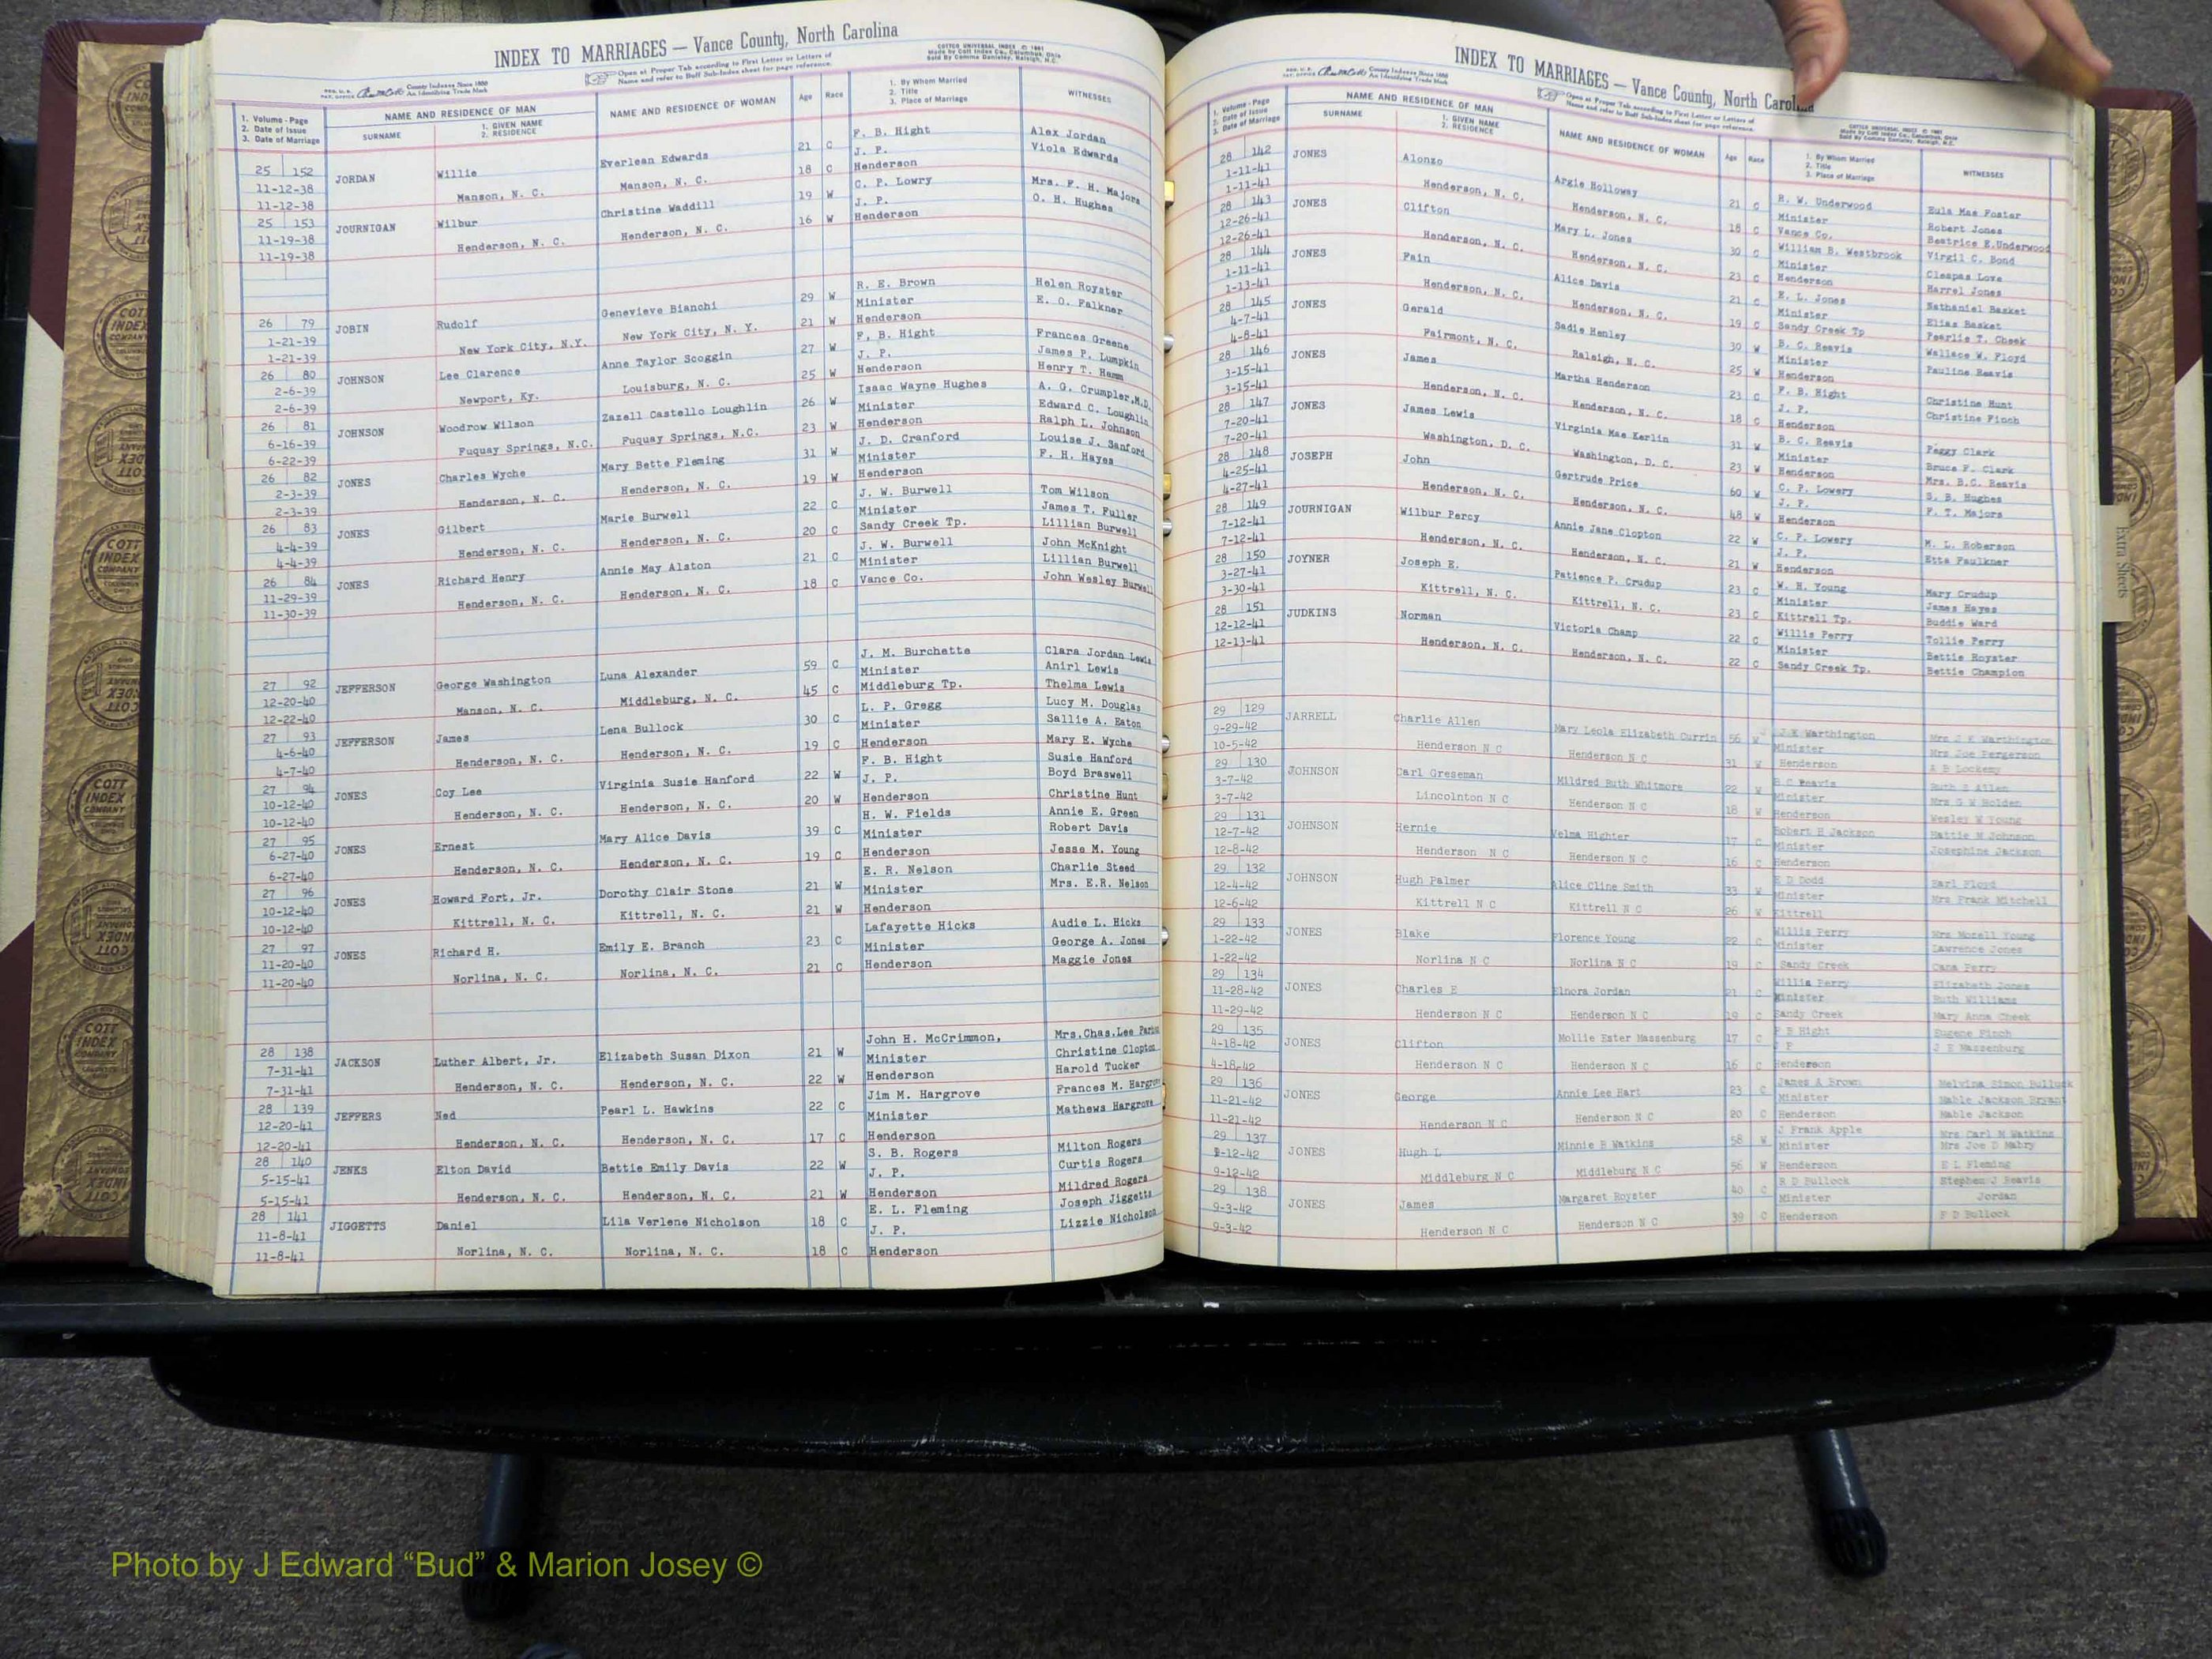 INDEX TO MARRIAGES — Vance County, North Carolina
County Indexes Since 1888
An Identifying Trade Mark
Open at Proper Tab according to First Letter or Letters of
Name and refer to Buff Sub-Index sheet for page reference.
COTTCO UNIVERSAL INDEX
Made by Cott Index Co., Columbus, Ohio
1. Volume - Page
2. Date of Issue
3. Date of Marriage
NAME AND RESIDENCE OF MAN
SURNAME
1. GIVEN NAME
2. RESIDENCE
NAME AND RESIDENCE OF WOMAN
Age Race
1. By Whom Married
2. Title
3. Place of Marriage
WITNESSES
25 152 JORDAN Willie Everlean Edwards 21 C F. B. Hight Alex Jordan
11-12-38 Manson, N. C. Manson, N. C. 18 C J. P. Viola Edwards
11-12-38 Henderson
25 153 JOURNIGAN Wilbur Christine Waddill 19 W C. P. Lowry Mrs. F. H. Majors
11-19-38 Henderson, N. C. Henderson, N. C. 16 W J. P. O. H. Hughes
11-19-38 Henderson
26 79 JOBIN Rudolf Genevieve Bianchi 29 W R. E. Brown Helen Royster
1-21-39 New York City, N.Y. New York City, N. Y. 21 W Minister E. O. Falkner
1-21-39 Henderson
26 80 JOHNSON Lee Clarence Anne Taylor Scoggin 27 W F. B. Hight Frances Greene
2-6-39 Newport, Ky. Louisburg, N. C. 25 W J. P. James P. Lumpkin
2-6-39 Henderson Henry T. Hamm
26 81 JOHNSON Woodrow Wilson Zazell Castello Loughlin 26 W Isaac Wayne Hughes A. G. Crumpler,M.D.
6-16-39 Fuquay Springs, N.C. Fuquay Springs, N.C. 23 W Minister Edward C. Loughlin
6-22-39 Henderson Ralph L. Johnson
26 82 JONES Charles Wyche Mary Bette Fleming 31 W J. D. Cranford Louise J. Sanford
2-3-39 Henderson, N. C. Henderson, N. C. 19 W Minister F. H. Hayes
2-3-39 Henderson
26 83 JONES Gilbert Marie Burwell 22 C J. W. Burwell Tom Wilson
4-4-39 Henderson, N. C. Henderson, N. C. 20 C Minister James T. Fuller
4-4-39 Sandy Creek Tp. Lillian Burwell
26 84 JONES Richard Henry Annie May Alston 21 C J. W. Burwell John McKnight
11-29-39 Henderson, N. C. Henderson, N. C. 18 C Minister Lillian Burwell
11-30-39 Vance Co. John Wesley Burwell
27 92 JEFFERSON George Washington Luna Alexander 59 C J. M. Burchette Clara Jordan Lewis
12-20-40 Manson, N. C. Middleburg, N. C. 45 C Minister Anirl Lewis
12-22-40 Middleburg Tp. Thelma Lewis
27 93 JEFFERSON James Lena Bullock 30 C L. P. Gregg Lucy M. Douglas
4-6-40 Henderson, N. C. Henderson, N. C. 19 C Minister Sallie A. Eaton
4-7-40 Henderson Mary E. Wyche
27 94 JONES Coy Lee Virginia Susie Hanford 22 W F. B. Hight Susie Hanford
10-12-40 Henderson, N. C. Henderson, N. C. 20 W J. P. Boyd Braswell
10-12-40 Henderson Christine Hunt
27 95 JONES Ernest Mary Alice Davis 39 C H. W. Fields Annie E. Green
6-27-40 Henderson, N. C. Henderson, N. C. 19 C Minister Robert Davis
6-27-40 Henderson Jesse M. Young
27 96 JONES Howard Fort, Jr. Dorothy Clair Stone 21 W E. R. Nelson Charlie Steed
10-12-40 Kittrell, N. C. Kittrell, N. C. 21 W Minister Mrs. E.R. Nelson
10-12-40 Henderson
27 97 JONES Richard H. Emily E. Branch 23 C Lafayette Hicks Audie L. Hicks
11-20-40 Norlina, N. C. Norlina, N. C. 21 C Minister George A. Jones
11-20-40 Henderson Maggie Jones
28 138 JACKSON Luther Albert, Jr. Elizabeth Susan Dixon 21 W John H. McCrimmon, Mrs.Chas.Lee
7-31-41 Henderson, N. C. Henderson, N. C. 22 W Minister Christine Clopton
7-31-41 Henderson Harold Tucker
28 139 JEFFERS Ned Pearl L. Hawkins 22 C Jim M. Hargrove Frances M. Hargrove
12-20-41 Henderson, N. C. Henderson, N. C. 17 C Minister Mathews Hargrove
12-20-41 Henderson
28 140 JENKS Elton David Bettie Emily Davis 22 W S. B. Rogers Milton Rogers
5-15-41 Henderson, N. C. Henderson, N. C. 21 W J. P. Curtis Rogers
5-15-41 Henderson Mildred Rogers
28 141 JIGGETTS Daniel Lila Verlene Nicholson 18 C E. L. Fleming Joseph Jiggetts
11-8-41 Norlina, N. C. Norlina, N. C. 18 C J. P. Lizzie Nicholson
11-8-41 Henderson
INDEX TO MARRIAGES — Vance County, North Carolina
County Indexes Since 1888
An Identifying Trade Mark
Open at Proper Tab according to First Letter or Letters of
Name and refer to Buff Sub-Index sheet for page reference.
1. Volume - Page
2. Date of Issue
3. Date of Marriage
NAME AND RESIDENCE OF MAN
SURNAME
1. GIVEN NAME
2. RESIDENCE
NAME AND RESIDENCE OF WOMAN
Age Race
1. By Whom Married
2. Title
3. Place of Marriage
WITNESSES
28 142 JONES Alonzo Argie Holloway 21 C R. W. Underwood Eula Mae Foster
1-11-41 Henderson, N. C. Henderson, N. C. 18 C Minister Robert Jones
1-11-41 Vance Co. Beatrice E.Underwood
28 143 JONES Clifton Mary L. Jones 30 C William B. Westbrook Virgil C. Bond
12-26-41 Henderson, N. C. Henderson, N. C. 23 C Minister Cleapas Love
12-26-41 Henderson Harrel Jones
28 144 JONES Fain Alice Davis 21 C E. L. Jones Nathaniel Basket
1-11-41 Henderson, N. C. Henderson, N. C. 19 C Minister Elias Basket
1-13-41 Sandy Creek Tp Pearlie T. Cheek
28 145 JONES Gerald Sadie Henley 30 W B. C. Reavis Wallace W. Floyd
4-7-41 Fairmont, N. C. Raleigh, N. C. 25 W Minister Pauline Reavis
4-8-41 Henderson
28 146 JONES James Martha Henderson 23 C F. B. Hight Christine Hunt
3-15-41 Henderson, N. C. Henderson, N. C. 18 C J. P. Christine Finch
3-15-41 Henderson
28 147 JONES James Lewis Virginia Mae Kerlin 31 W B. C. Reavis Peggy Clark
7-20-41 Washington, D. C. Washington, D. C. 23 W Minister Bruce F. Clark
7-20-41 Henderson Mrs. B.C. Reavis
28 148 JOSEPH John Gertrude Price 60 W C. P. Lowery S. B. Hughes
4-25-41 Henderson, N. C. Henderson, N. C. 48 W J. P. F. T. Majors
4-27-41 Henderson
28 149 JOURNIGAN Wilbur Percy Annie Jane Clopton 22 W C. P. Lowery M. L. Roberson
7-12-41 Henderson, N. C. Henderson, N. C. 21 W J. P. Etta Faulkner
7-12-41 Henderson
28 150 JOYNER Joseph E. Patience P. Crudup 23 C W. H. Young Mary Crudup
3-27-41 Kittrell, N. C. Kittrell, N. C. 23 C Minister James Hayes
3-30-41 Kittrell Tp. Buddie Ward
28 151 JUDKINS Norman Victoria Champ 22 C Willis Perry Tollie Perry
12-12-41 Henderson, N. C. Henderson, N. C. 22 C Minister Bettie Royster
12-13-41 Sandy Creek Tp. Bettie Champion
29 129 JARRELL Charlie Allen Mary Leola Elizabeth Currin 56 W J K Warthington Mrs J K Warthington
9-29-42 Henderson N C Henderson N C 31 W Minister Mrs Joe Pergerson
10-5-42 Henderson A B Lockemy
29 130 JOHNSON Carl Greseman Mildred Ruth Whitmore 22 W B C Reavis Ruth E Allen
3-7-42 Lincolnton N C Henderson N C 18 W Minister Mrs G W Holden
3-7-42 Henderson Wesley W Young
29 131 JOHNSON Hernie Velma Highter 17 C Robert H Jackson Hattie M Johnson
12-7-42 Henderson N C Henderson N C 16 C Minister Josephine Jackson
12-8-42 Henderson
29 132 JOHNSON Hugh Palmer Alice Cline Smith 33 W E D Dodd Earl Floyd
12-4-42 Kittrell N C Kittrell N C 26 W Minister Mrs Frank Mitchell
12-6-42 Kittrell
29 133 JONES Blake Florence Young 22 C Willis Perry Mrs Mozell Young
1-22-42 Norlina N C Norlina N C 19 C Minister Lawrence Jones
1-22-42 Sandy Creek Cana Perry
29 134 JONES Charles E Elnora Jordan 21 C Willis Perry Elizabeth Jones
11-28-42 Henderson N C Henderson N C 19 C Minister Ruth Williams
11-29-42 Sandy Creek Mary Anna Cheek
29 135 JONES Clifton Mollie Ester Massenburg 17 C F B Hight Eugene Finch
4-18-42 Henderson N C Henderson N C 16 C J P J E Massenburg
4-18-42 Henderson
29 136 JONES George Annie Lee Hart 23 C James A Brown Melvina Simon Bullock
11-21-42 Henderson N C Henderson N C 20 C Minister Mable Jackson Bryant
11-21-42 Henderson Mable Jackson
29 137 JONES Hugh L Minnie B Watkins 58 W J Frank Apple Mrs Carl N Watkins
9-12-42 Middleburg N C Middleburg N C 56 W Minister Mrs Joe D Mabry
9-12-42 Henderson E L Fleming
29 138 JONES James Margaret Royster 40 C R D Bullock Stephen J Reavis
9-3-42 Henderson N C Henderson N C 39 C Minister Jordan
9-3-42 Henderson F D Bullock
Extra Sheets
COTT INDEX COMPANY
Photo by J Edward “Bud” & Marion Josey ©